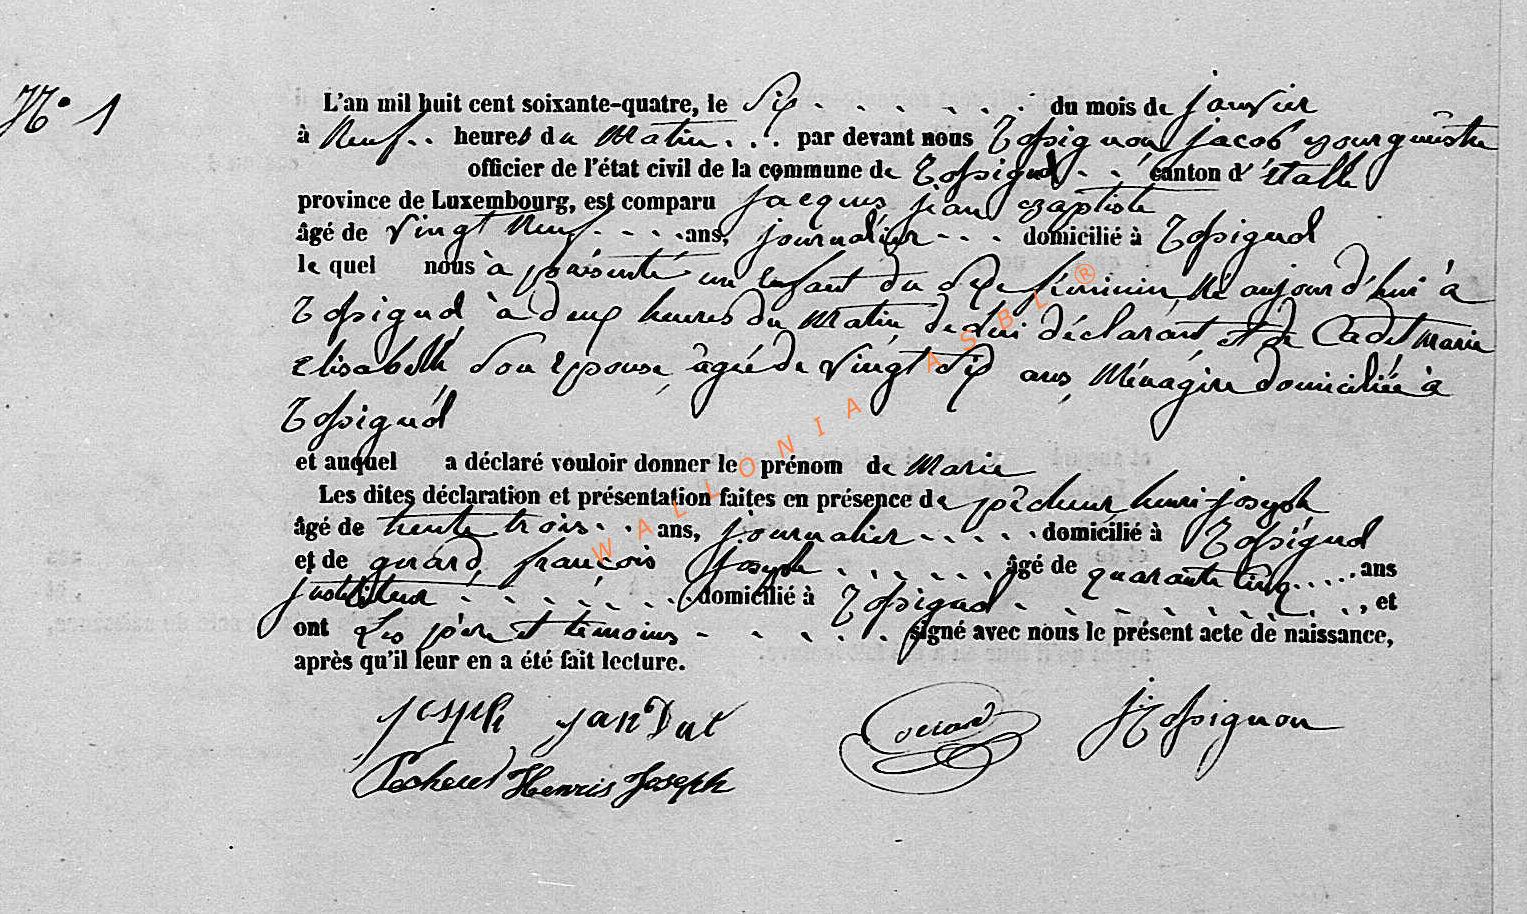 N° 1
L'an mil huit cent soixante-quatre, le Six . . . . . . du mois de janvier
à Neuf . . heures du Matin . . . par devant nous Rossignon jacob Bourguemestre
officier de l'état civil de la commune de Rossignol . . canton d'étalle
province de Luxembourg, est comparu jacques jean Baptiste
âgé de Vingt Neuf . . . . ans, journalier . . . domicilié à Rossignol
le quel nous à présenté un enfant du Sexe féminin Né aujourd'hui à
Rossignol à deux heures du Matin de lui déclarant et de Cadet Marie
elisabeth Son epouse, âgée de Vingt Six ans, Ménagère domiciliée à
Rossignol
et auquel a déclaré vouloir donner le prénom de Marie
Les dites déclaration et présentation faites en présence de pêcheur henri-joseph
âgé de trente trois . . ans, journalier . . . . . domicilié à Rossignol
et de gerard françois joseph . . . . . . âgé de quarante Cinq . . . . . ans
instituteur . . . . . . . domicilié à Rossignol . . . . . . . . . , et
ont Les père et témoins . . . . . . signé avec nous le présent acte de naissance,
après qu'il leur en a été fait lecture.
Joseph Gerard J Rossignon
Henris Joseph
WALLONIA ASBL ®